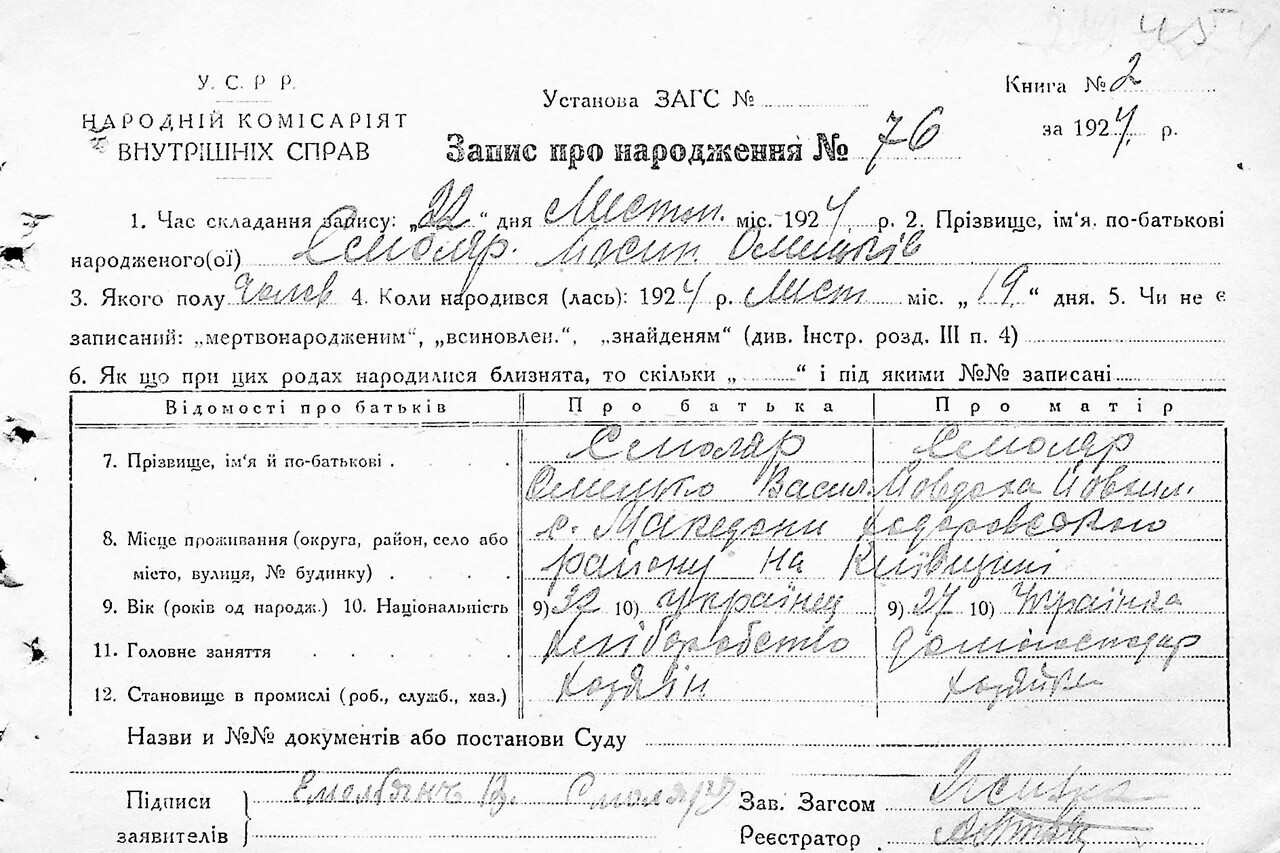 У. С. Р Р.
НАРОДНІЙ КОМІСАРІЯТ
ВНУТРІШНІХ СПРАВ
Установа ЗАГС №
Запис про народження № 76
Книга № 2
за 1924 р.
1. Час складання запису: „22" дня Листоп. міс. 1924 р. 2. Прізвище, ім'я, по-батькові
народженого(ої) Смоляр
3. Якого полу Чолов 4. Коли народився (лась): 1924 р. Лист міс. „19" дня. 5. Чи не є
записаний: „мертвонародженим", „всиновлен.", „знайденям" (див. Інстр. розд. III п. 4)
6. Як що при цих родах народилися близнята, то скільки „ " і під якими №№ записані
Відомості про батьків Про батька Про матір
7. Прізвище, ім'я й по-батькові . Смоляр Смоляр
Васил.
8. Місце проживання (округа, район, село або с. Македони
місто, вулиця, № будинку) . району на Київщині
9. Вік (років од народж.) 10. Національність 9) 32 10) українец 9) 27 10) Українка
11. Головне заняття хліборобство домогосподар
12. Становище в промислі (роб., служб., хаз.) хозяїн хозяйка
Назви и №№ документів або постанови Суду
Підписи Смоляр
заявителів
Зав. Загсом
Реєстратор